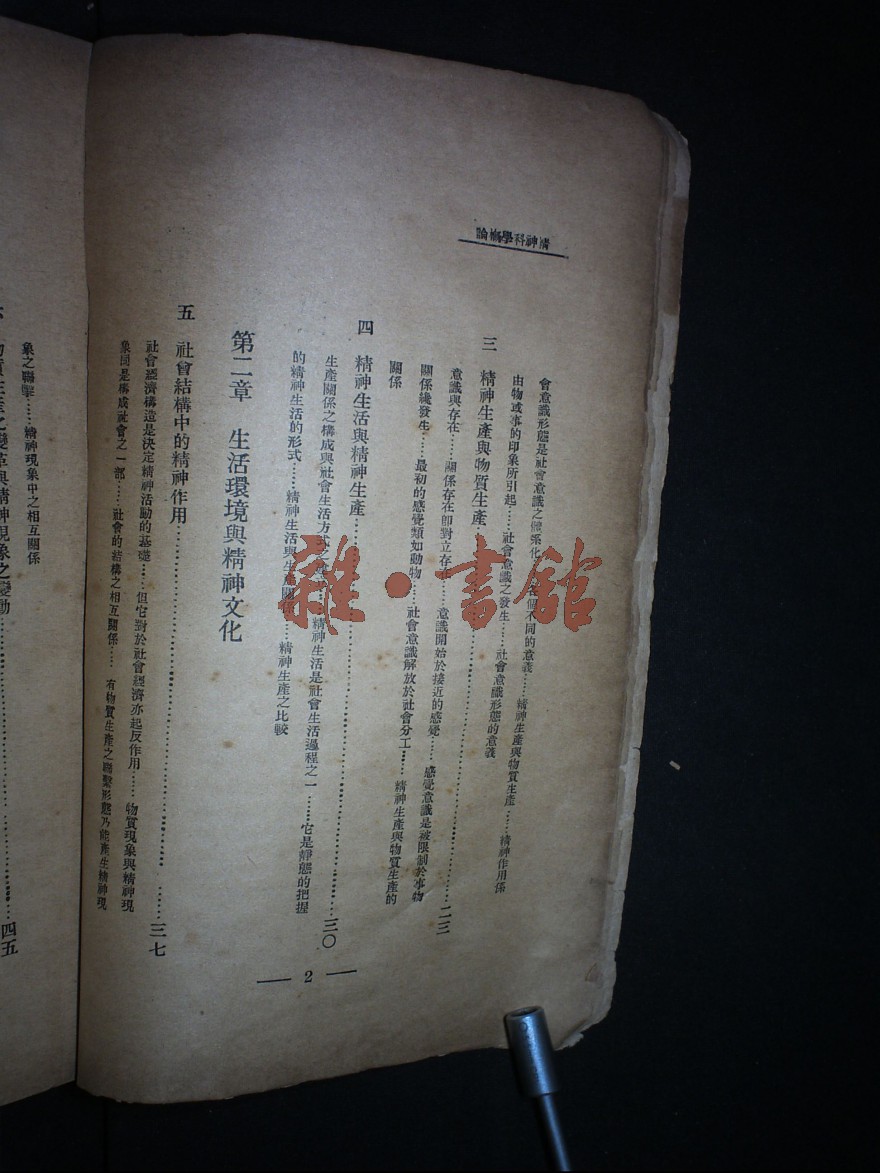 精神科學概論
會意識形態是社會意識之體系化
個不同的意義……精神生產與物質生產……精神作用係
由物或事的印象所引起……社會意識之發生……社會意識形態的意義
三 精神生產與物質生產……二三
意識與存在……關係存在即對立存在……意識開始於接近的感覺……感覺意識是被限制於事物
關係纔發生……最初的感覺類如動物……社會意識解放於社會分工……精神生產與物質生產的
關係
四 精神生活與精神生產……三〇
生產關係之構成與社會生活方式之……精神生活是社會生活過程之一……它是靜態的把握
的精神生活的形式……精神生活與生產關係……精神生產之比較
第二章 生活環境與精神文化
五 社會結構中的精神作用……三七
社會經濟構造是決定精神活動的基礎……但它對於社會經濟亦起反作用……物質現象與精神現
象固是構成社會之一部……社會的結構之相互關係……有物質生產之聯繫形態乃能產生精神現
象之聯繫……精神現象中之相互關係
物質生產之變革與精神現象之變動……四五
2
雜·書館